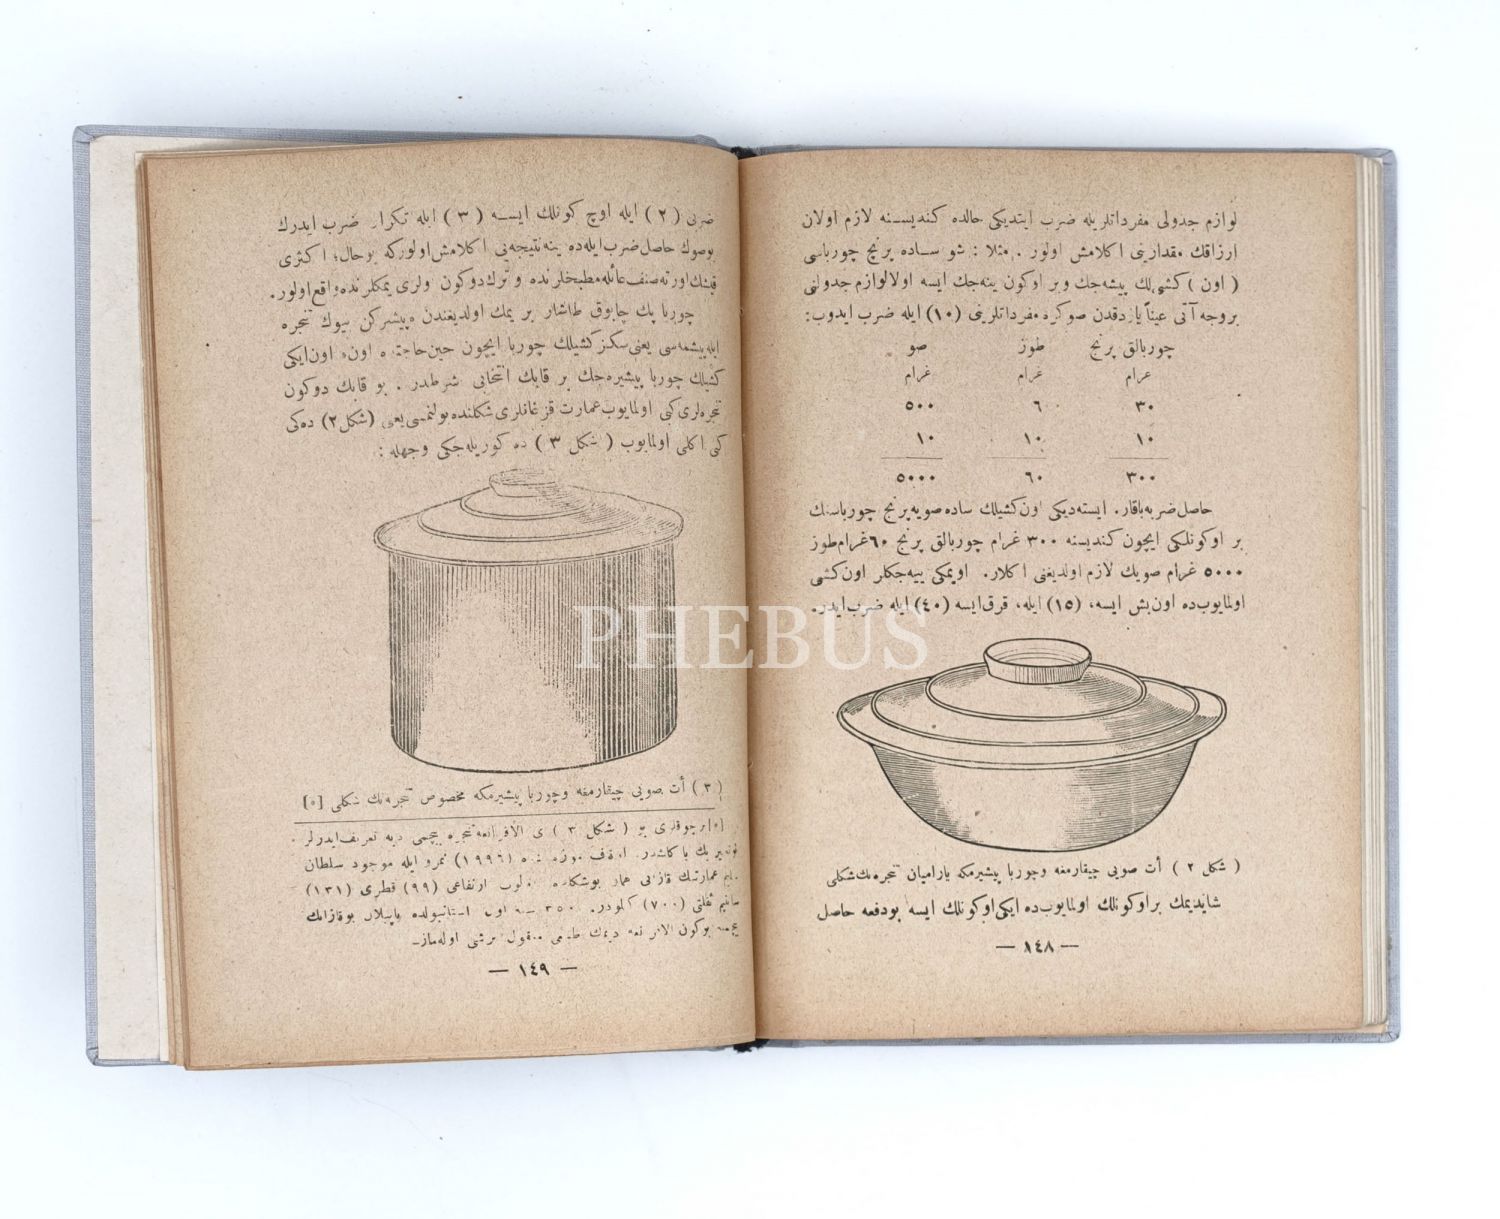 لوازم جدولی مفرداتلریله ضرب ایتدیکی حالده کندیسنه لازم اولان
ارزاقك مقدارینی اکلامش اولور . مثلا : شو ساده پرنج چورباسی
( اون ) کشی‌لك پیشه‌جك وبر اوکون ینه‌جك ایسه اولا لوازم جدولنی
بروجه آتی عیناً یازدقدن صوکره مفرداتلرینی (١٠) ایله ضرب ایدوب :
چوربالق پرنج طوز صو
غرام غرام غرام
٣٠ ٦ ٥٠٠
١٠ ١٠ ١٠
٣٠٠ ٦٠ ٥٠٠٠
حاصل ضربه باقار . ایسته‌دیکی اون کشیلك ساده صویه پرنج چورباسنك
بر اوکونلکی ایچون کندیسنه ٣٠٠ غرام چوربالق پرنج ٦٠ غرام طوز
٥٠٠٠ غرام صویك لازم اولدیغنی اکلار . اویمکی ییه‌جکلر اون کشی
اولمایوب‌ده اون‌بش ایسه، (١٥) ایله، قرق ایسه (٤٠) ایله ضرب ایدر .
( شکل ٢ ) أت صویی چیقارمغه وچوربا پیشیرمکه یارامیان تنجره‌نك شکلی
شایدیمك براوکونلك اولمایوب‌ده ایکی اوکونلك ایسه بودفعه حاصل
— ١٤٨ —
ضربی (٢) ایله اوچ کونلك ایسه (٣) ایله تکرار ضرب ایدرك
بوصوك حاصل ضرب ایله‌ده ینه نتیجه‌یی اکلامش اولورکه بوحال؛ اکثری
قیشك اورته صنف عائله مطبخلرنده وترك دوکون اولری یمکلرنده واقع اولور .
چوربا پك چابوق طاشار بر یمك اولدیغندن پیشیرکن بیوك تنجره
ایله پیشمه‌سی یعنی سکز کشیلك چوربا ایچون حین حاجتده اون، اون‌ایکی
کشیلك چوربا پیشیره‌جك بر قابك انتخابی شرطدر . بو قابك دوکون
تنجره‌لری کبی اولمایوب عمارت قزغانلری شکلنده بولنمسی یعنی (شکل ٢) ده‌کی
کبی اکلی اولمایوب ( شکل ٣ ) ده کوریله‌جکی وجهله :
( ٣ ) أت صویی چیقارمغه وچوربا پیشیرمکه مخصوص تنجره‌نك شکلی [٥]
[٥] برچوقلری بو ( شکل ٣ ) ی الافرانغه تنجره بیچمی دیه تعریف ایدرلر
اوقاف موزه‌سنده (١٩٩٦) نمرو ایله موجود سلطان
عمارتنك قازانی همان بوشکلده ارتفاعی (٩٩) قطری (١٣١)
ثقلتی (٧٠٠) کیلودر . ٣٥٠ سنه اول استانبولده یاپیلان بوقازانك
بوکون الافرانغه دیمك منقول اوله‌ماز .
— ١٤٩ —
PHEBUS